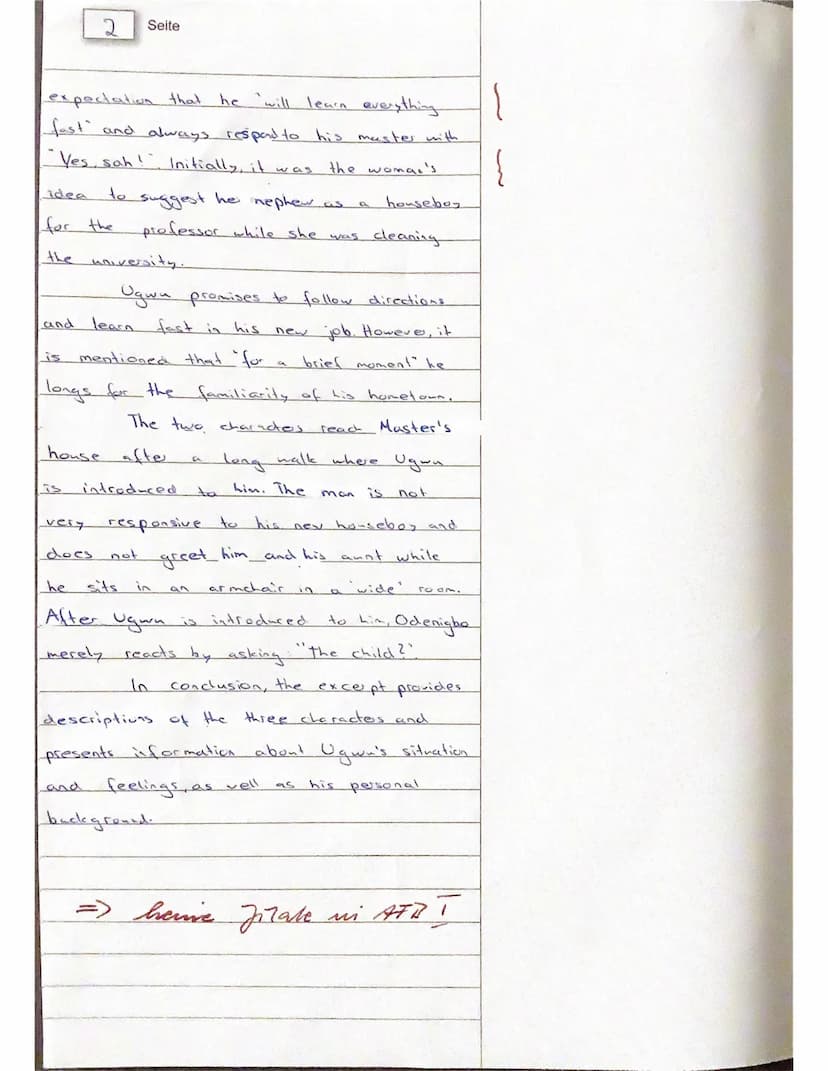 2 Seite
expectation that he "will learn everything
fast" and always respond to his master with
"Yes, sah!". Initially, it was the woman's
idea to suggest he nephew as a houseboy
for the professor while she was cleaning
the university.
Ugwu promises to follow directions
and learn fast in his new job. Howeve, it
is mentioned that "for a brief moment" he
longs for the familiarity of his hometown.
The two characters reach Master's
house after a long walk where Ugwu
is introduced to him. The man is not
very responsive to his new houseboy and
does not greet him and his aunt while
he sits in an armchair in a 'wide' room.
After Ugwu is introduced to him, Odenigbo
merely reacts by asking: "The child?".
In conclusion, the excerpt provides
descriptions of the three characters and
presents information about Ugwu's situation
and feelings, as well as his personal
background.
=> keine Zitate in AFB I